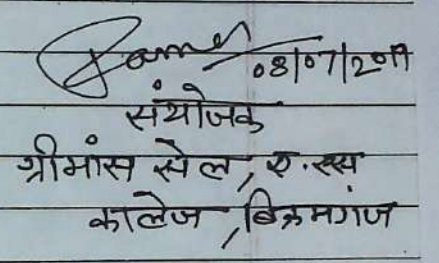 08/07/2019
संयोजक
ग्रीमांस सेल, ए.एस
कालेज, बिक्रमगंज